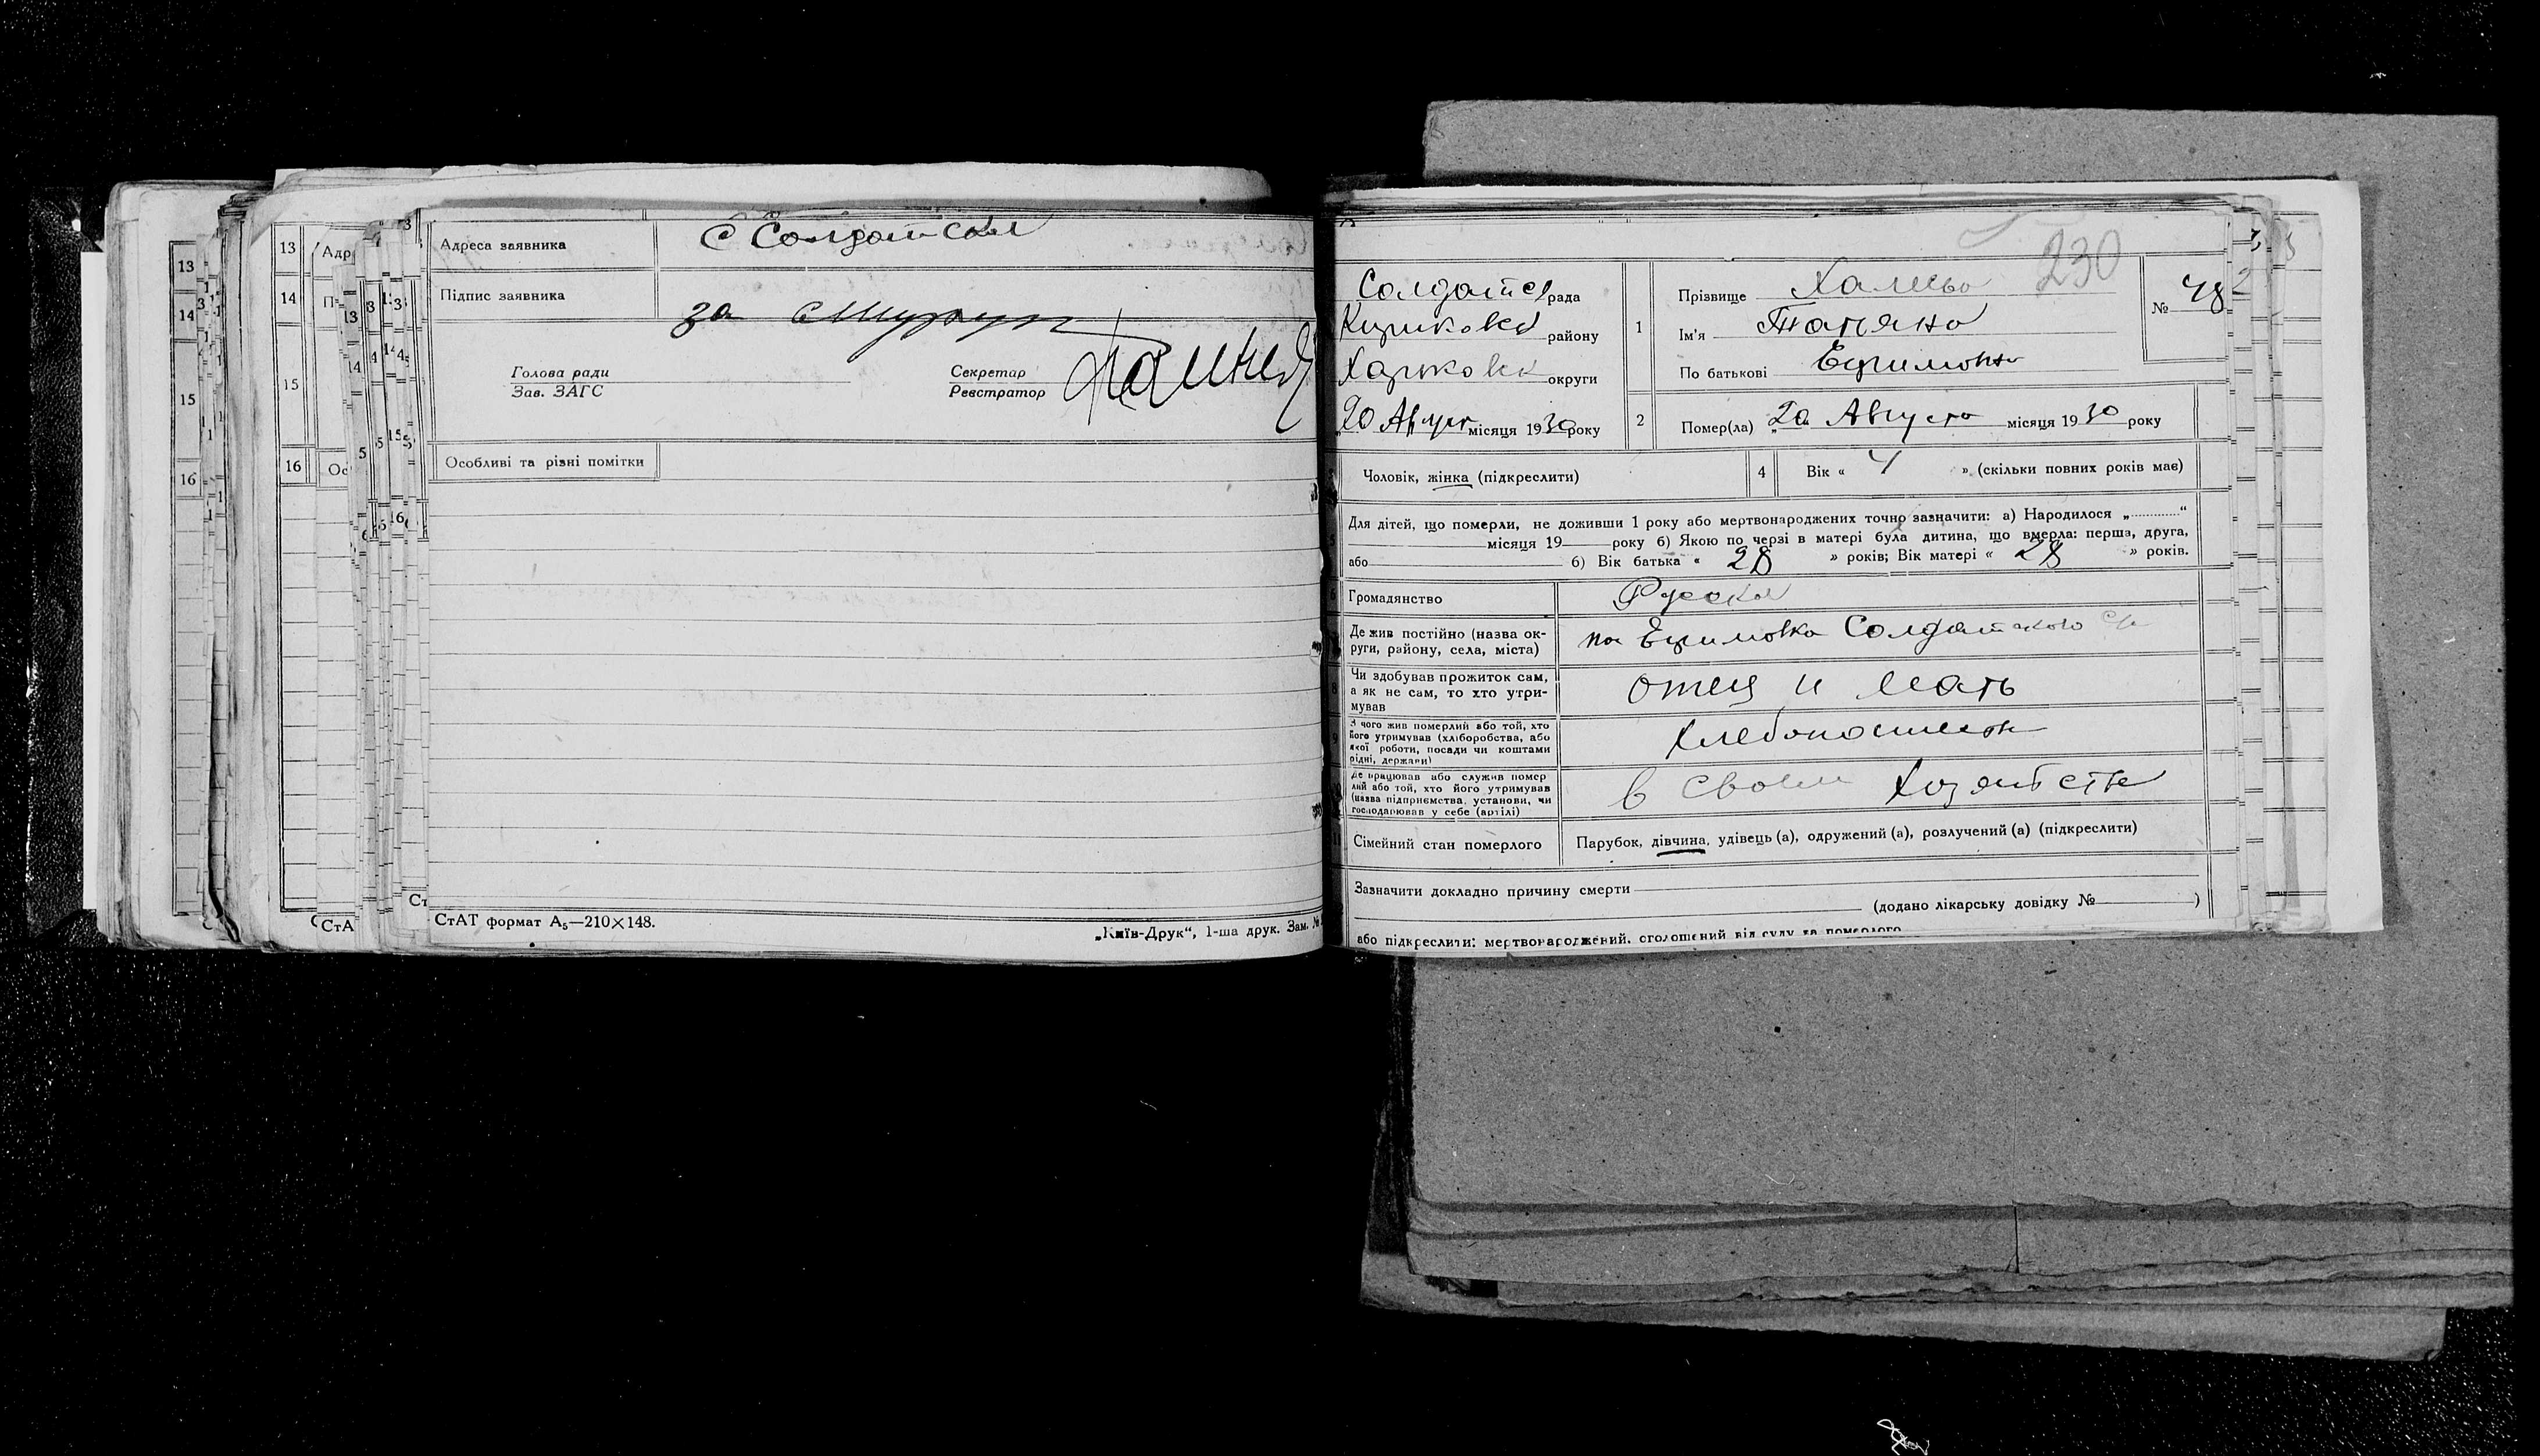 13
14
15
16
13 Адр
14
15
16 Ос
Адреса заявника С Солдатская
Підпис заявника
за
Голова ради
Зав. ЗАГС
Секретар
Реєстратор
Особливі та різні помітки
СтАТ формат А5—210×148.
„Київ-Друк“, 1-ша друк. Зам. №
230
Солдатск рада
району
Харьковск округи
20 Август місяця 1930 року
1
Прізвище
Ім'я Татьяна
По батькові Ефимовна
№ 48
2
Помер(ла) „20 Августа місяця 1930 року
Чоловік, жінка (підкреслити)
4 Вік « 4 » (скільки повних років має)
Для дітей, що померли, не доживши 1 року або мертвонароджених точно зазначити: а) Народилося „............“
місяця 19 року б) Якою по черзі в матері була дитина, що вмерла: перша, друга,
або б) Вік батька « 28 » років; Вік матері « 28 » років.
Громадянство Русская
Де жив постійно (назва ок-
руги, району, села, міста)
Ефимовка Солдатского с/р
Чи здобував прожиток сам,
а як не сам, то хто утри-
мував
отец и мать
З чого жив померлий або той, хто
його утримував (хліборобства, або
якої роботи, посади чи коштами
рідні, держави)
Хлебопашеств
Де працював або служив помер
лий або той, хто його утримував
(назва підприємства, установи, чи
господарював у себе (артілі)
в своем хозяйстве
Сімейний стан померлого
Парубок, дівчина, удівець (а), одружений (а), розлучений (а) (підкреслити)
Зазначити докладно причину смерти
(додано лікарську довідку № )
або підкреслити: мертвонароджений, оголошений від суду за померлого